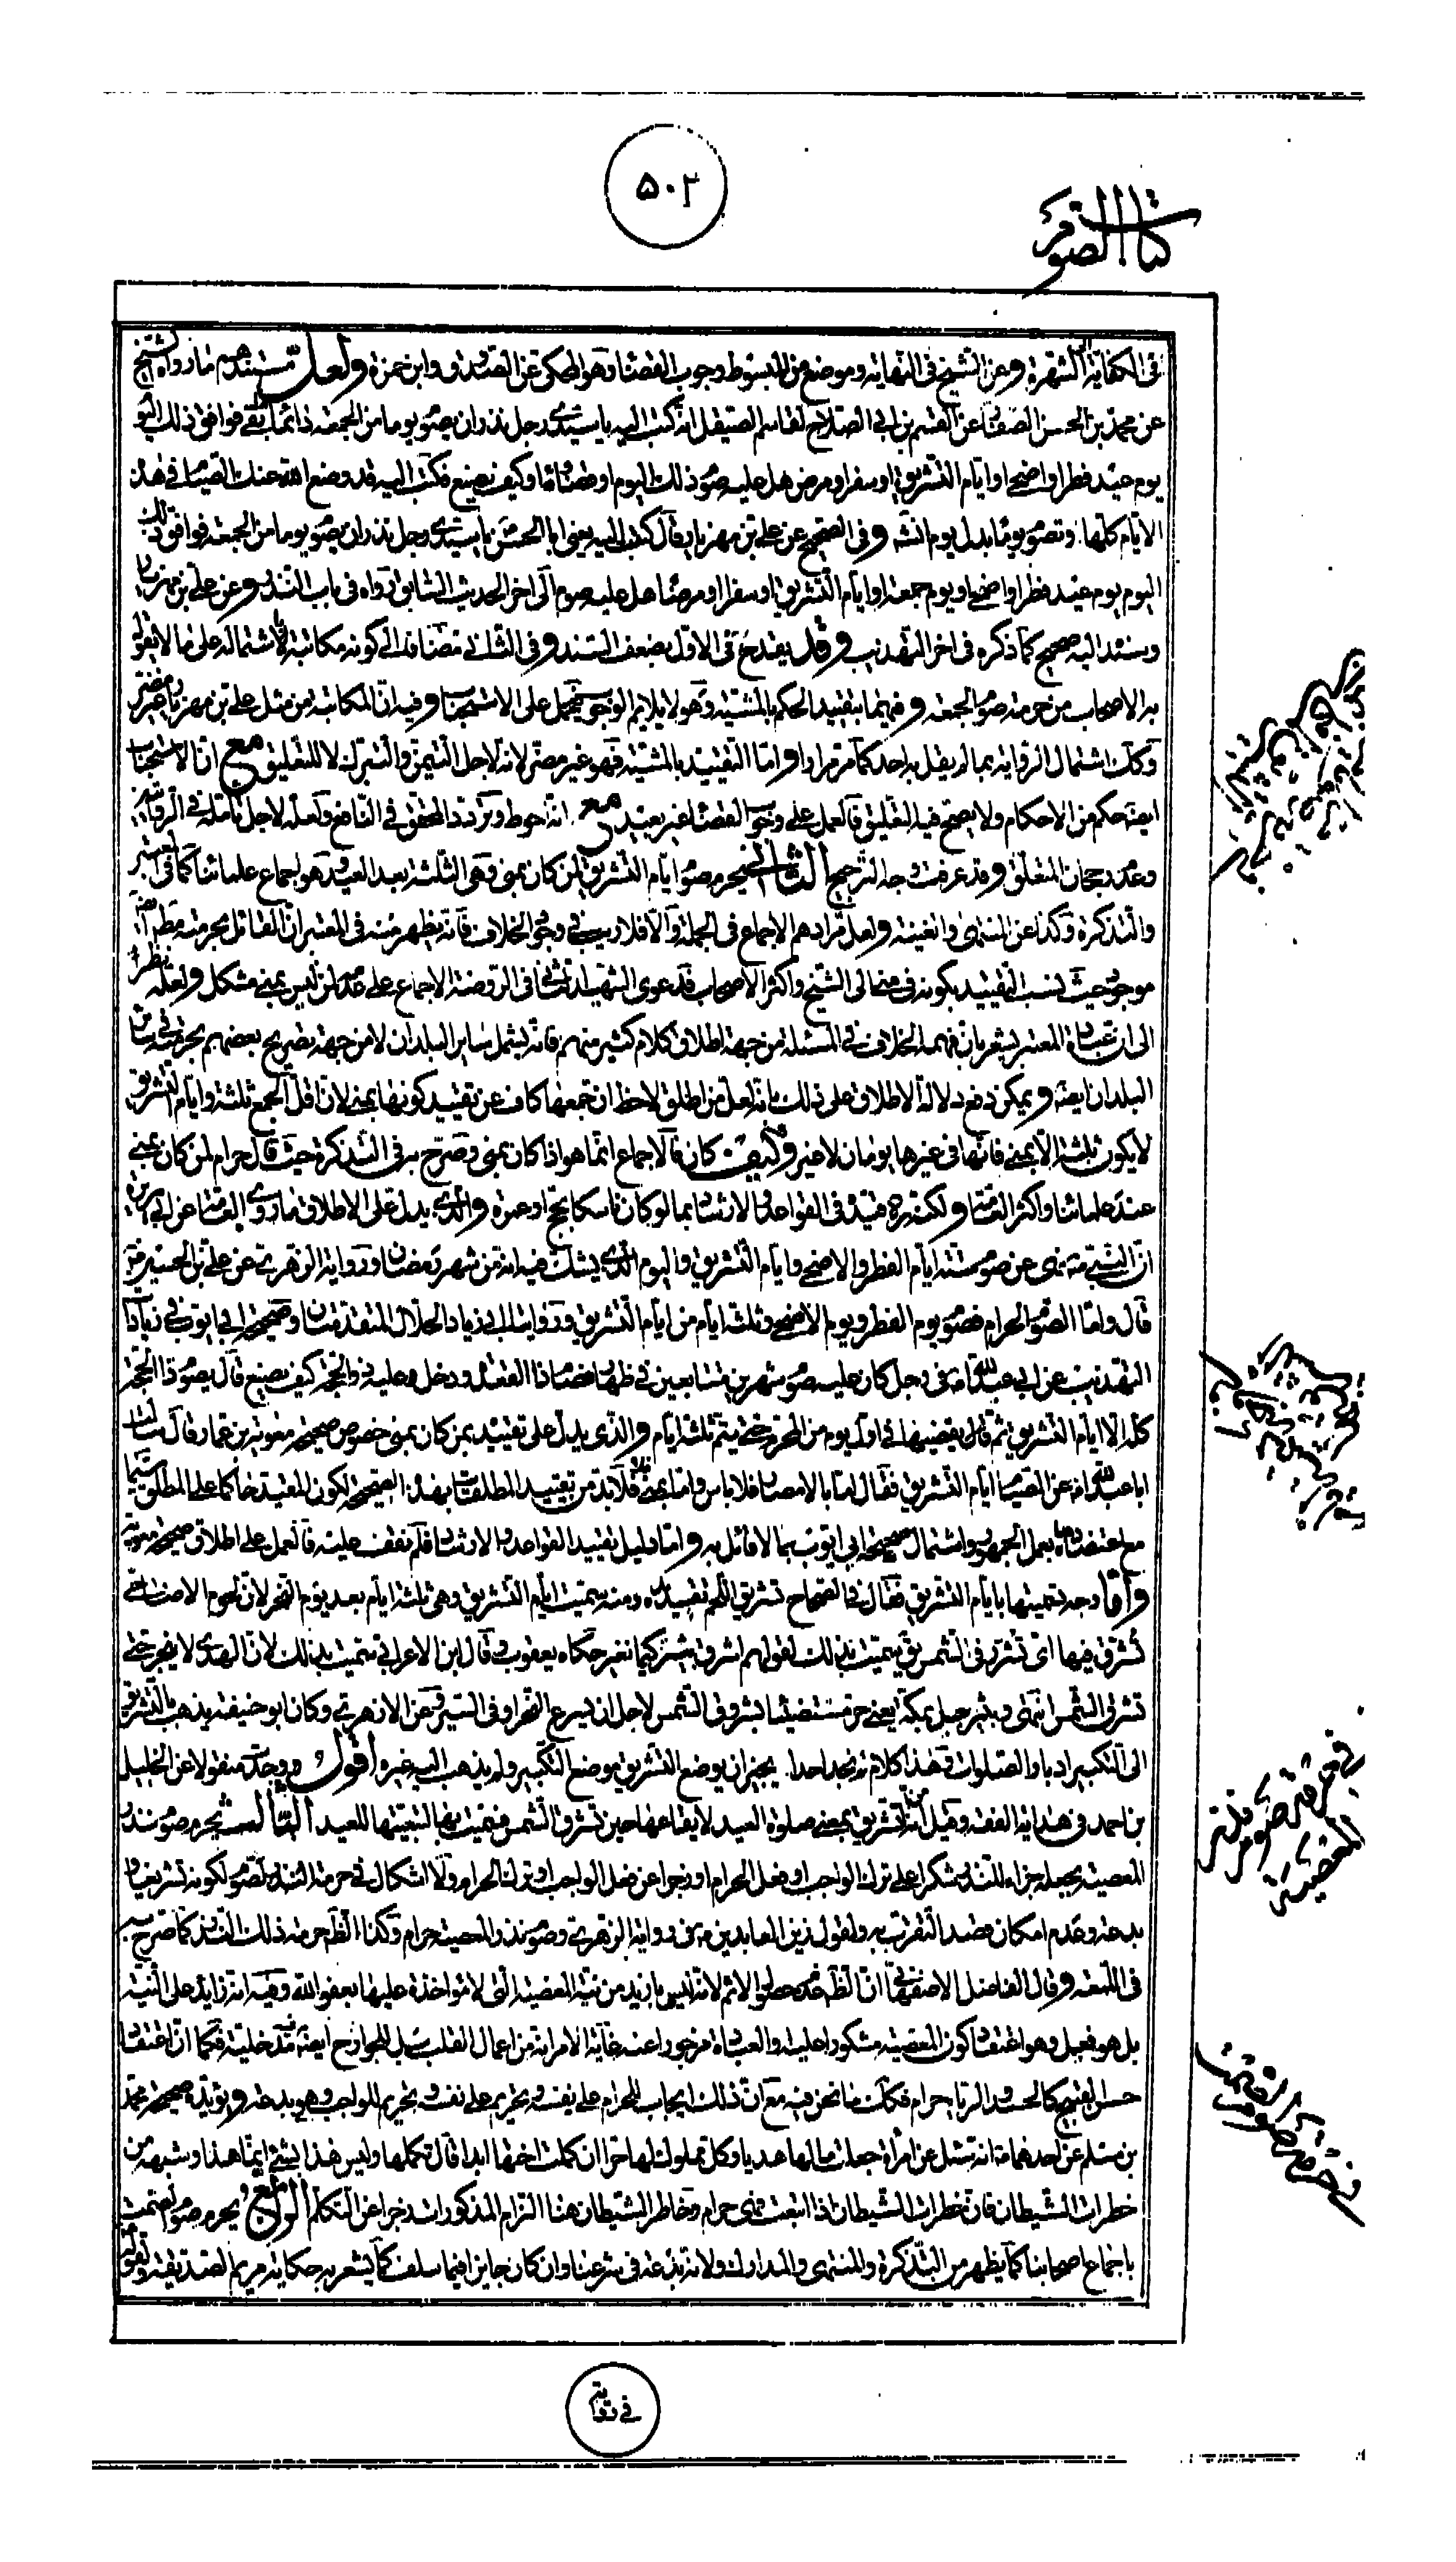 ۵۰۲
كتاب الصوم
فى الكفاية الشهرة وعن الشيخ فى النهاية وموضع من المبسوط وجوب القضاء وهو المحكى عن الصدوق وابن حمزة ولعل مستندهم ما رواه الشيخ
عن محمد بن الحسن الصفار عن القسم بن ابى القاسم الصيقل انه كتب اليه يا سيدى رجل نذر ان يصوم يوما من الجمعة دائما ما بقى فوافق ذلك اليوم
يوم عيد فطر او اضحى او ايام التشريق او سفر او مرض هل عليه صوم ذلك اليوم او قضائه او كيف يصنع فكتب اليه قد وضع الله عنك الصيام فى هذه
الايام كلها وتصوم يوما بدل يوم انشه وفى الصحيح عن على بن مهزيار قال كتب اليه يعنى ابا الحسن يا سيدى رجل نذر ان يصوم يوما من الجمعة فوافق ذلك
اليوم يوم عيد فطر او اضحى او يوم جمعة او ايام التشريق او سفرا او مرضا هل عليه صوم الى اخر الحديث السابق رواه فى باب النذور عن على بن مهزيار
وسنده اليه صحيح كما ذكره فى اخر التهذيب وقد يقدح فى الاول بضعف السند وفى الثانى مضافا الى كونه مكاتبة لاشتماله على ما لا يقول
به الاصحاب من حرمة صوم الجمعة وفيهما بتقييد الحكم بالمشية وهو لا يلايم الوجوب فيحمل على الاستحباب وفيه ان المكاتبة من مثل على بن مهزيار غير مضر
وكك اشتمال الرواية بما لم يقل به احد كما مر مرارا واما التقييد بالمشية فهو غير مضر لانه لاجل التيمن والتبرك لا للتعليق مع ان الاستحباب
ايضا حكم من الاحكام ولا يصح فيه التعليق فالعمل على وجوب القضاء غير بعيد مع انه احوط وتردد المحقق فى النافع ولعله لاجل تامله فى الرواية
وعدم رجحان المتعلق وقد عرفت وجه الترجيح الثانى يحرم صوم ايام التشريق لمن كان بمنى وهى الثلثة بعد العيد وهو اجماع علمائنا كما فى المعتبر
والتذكرة وكذا عن المنتهى والغنية ولعل مرادهم الاجماع فى الجملة والا فلا ريب فى وجود الخلاف فانه يظهر منه فى المعتبر ان القائل بحرمته مطلقا
موجود حيث نسب التقييد بكونه فى منى الى الشيخ واكثر الاصحاب فدعوى الشهيد الثانى فى الروضة الاجماع على عدمه لمن ليس بمنى مشكل ولعله نظر
الى ان عبارة المعتبر يشعر بان فهمه الخلاف فى المسئلة من جهة اطلاق كلام كثير منهم فانه يشمل ساير البلدان لا من جهة تصريح بعضهم بحرمته فى ساير
البلدان ايضا ويمكن دفع دلالة الاطلاق على ذلك بانه لعل من اطلق لاحظ ان جمعها كاف عن تقييد كونها بمنى لان اقل الجمع ثلثة وايام التشريق
لا يكون ثلثة الا بمنى فانها فى غيرها يومان لا غير وكيف كان فالاجماع انما هو اذا كان بمنى وصرح به فى التذكرة حيث قال حرام لمن كان بمنى
عند علمائنا واكثر العامة ولكنه ره قيده فى القواعد والارشاد بما لو كان ناسكا بحج او عمرة والذى يدل على الاطلاق ما رواه
ان النبى ص نهى عن صوم ستة ايام الفطر والاضحى وايام التشريق واليوم الذى يشك فيه انه من شهر رمضان ورواية الزهرى عن على بن الحسين ع
قال واما الصوم الحرام فصوم يوم الفطر ويوم الاضحى وثلثة ايام من ايام التشريق ورواية زياد بن ابى الحلال المتقدمتان وصحيحة ابى ايوب فى زيادات
التهذيب عن ابى عبد الله ع فى رجل كان عليه صوم شهرين متتابعين فى ظهار فصام ذا القعدة ودخل عليه ذو الحجة كيف يصنع قال يصوم ذا الحجة
كله الا ايام التشريق ثم قال يقضيها فى اول يوم من المحرم حتى يتم ثلثة ايام والذى يدل على تقييده بمن كان بمنى خصوص صحيحة معوية بن عمار قال سئلت
ابا عبد الله ع عن الصيام ايام التشريق فقال اما بالامصار فلا باس واما بمنى فلا فلا بد من تقييد المطلقات بهذه الصحيحة لكون المقيد حاكما على المطلق سيما
مع اعتضاده بعمل الجمهور واشتمال صحيحة ابى ايوب بما لا قائل به واما دليل تقييد القواعد والارشاد فلم نقف عليه فالعمل على اطلاق صحيحة معوية
واما وجه تسميتها بايام التشريق فقال فى الصحاح تشريق اللحم تقديده ومنه سميت ايام التشريق وهى ثلثة ايام بعد يوم النحر لان لحوم الاضاحى
تشرق فيها اى تشرق فى الشمس ويق سميت بذلك لقولهم اشرق ثبير كيما نغير حكاه يعقوب وقال ابن الاعرابى سميت بذلك لان الهدى لا ينحر حتى
تشرق الشمس انتهى وثبير جبل بمكة يعنى صر مستضيئا بشروق الشمس لاجل ان نسرع النحر او فى السير وعن الازهرى وكان ابو حنيفة يذهب بالتشريق
الى التكبير ادبار الصلوات وهذا كلام لم نجد احدا يجيز ان يوضع التشريق موضع التكبير ولم يذهب اليه غيره اقول ووجدت منقولا عن الخليل
بن احمد فى هداية الفقه وقيل من التشريق بمعنى صلوة العيد لايقاعها حين تشرق الشمس فسميت بها لتبعيتها للعيد الثالث يحرم صوم نذر
المعصية بجعله جزاء للنذر شكرا على ترك الواجب او فعل الحرام او زجرا عن فعل الواجب وترك الحرام ولا اشكال فى حرمة النذر والصوم لكونه تشريعا و
بدعة وعدم امكان قصد التقرب به ولقول زين العابدين ع فى رواية الزهرى وصوم نذر المعصية حرام وكذا الظ حرمة ذلك النذر كما صرح به
فى اللمعة وقال الفاضل الاصفهانى ان الظ عدم حصول الاثم لانه ليس بازيد من نية المعصية التى لا مؤاخذة عليها بعفو الله وفيه انه زايد على النية
بل هو فعل وهو اعتقاد كون المعصية مشكورا عليه والعبادة مزجورا عنه غاية الامر انه من اعمال القلب بل للجوارح ايضا مدخلية فكما ان اعتقاد
حسن القبيح كالحسد والربا حرام فكك ما نحن فيه مع ان ذلك ايجاب للحرام على نفسه وتحريم على نفسه وتحريم للواجب وهو بدعة ويؤيده صحيحة محمد
بن مسلم عن احدهما ع انه سئل عن امرأة جعلت مالها هديا وكل مملوك لها حرا ان كلمت اختها ابدا قال تكلمها وليس هذا بشئ انما هذا وشبهه من
خطرات الشيطان فان خطرات الشيطان اذا اتبعت فهى حرام وخاطر الشيطان هنا التزام المذكورات زجرا عن التكلم الرابع يحرم صوم الصمت
باجماع اصحابنا كما يظهر من التذكرة والمنتهى والمدارك ولانه بدعة فى شرعنا وان كان جايزا فيما سلف كما يشعر به حكاية مريم الصديقة ولقوله
فى حرمة صوم نذر المعصية
فى حرمة صوم الصمت
فى رواية